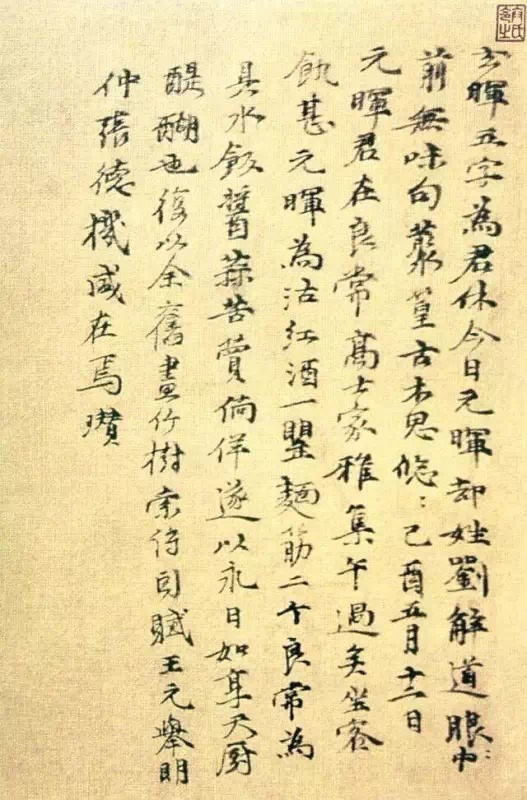 玄暉五字為君休今日元暉却姓劉解道眼中
前無味句叢篁古木思悠:己酉五月十二日
元暉君在良常高士家雅集午過矣坐客
飢甚元暉為沽紅酒一罌麵筋二个良常為
具水飯醬蒜苦蕒徜徉遂以永日如享天厨
醍醐也復以余舊畫竹樹索詩因賦王元舉明
仲張德機咸在焉瓚